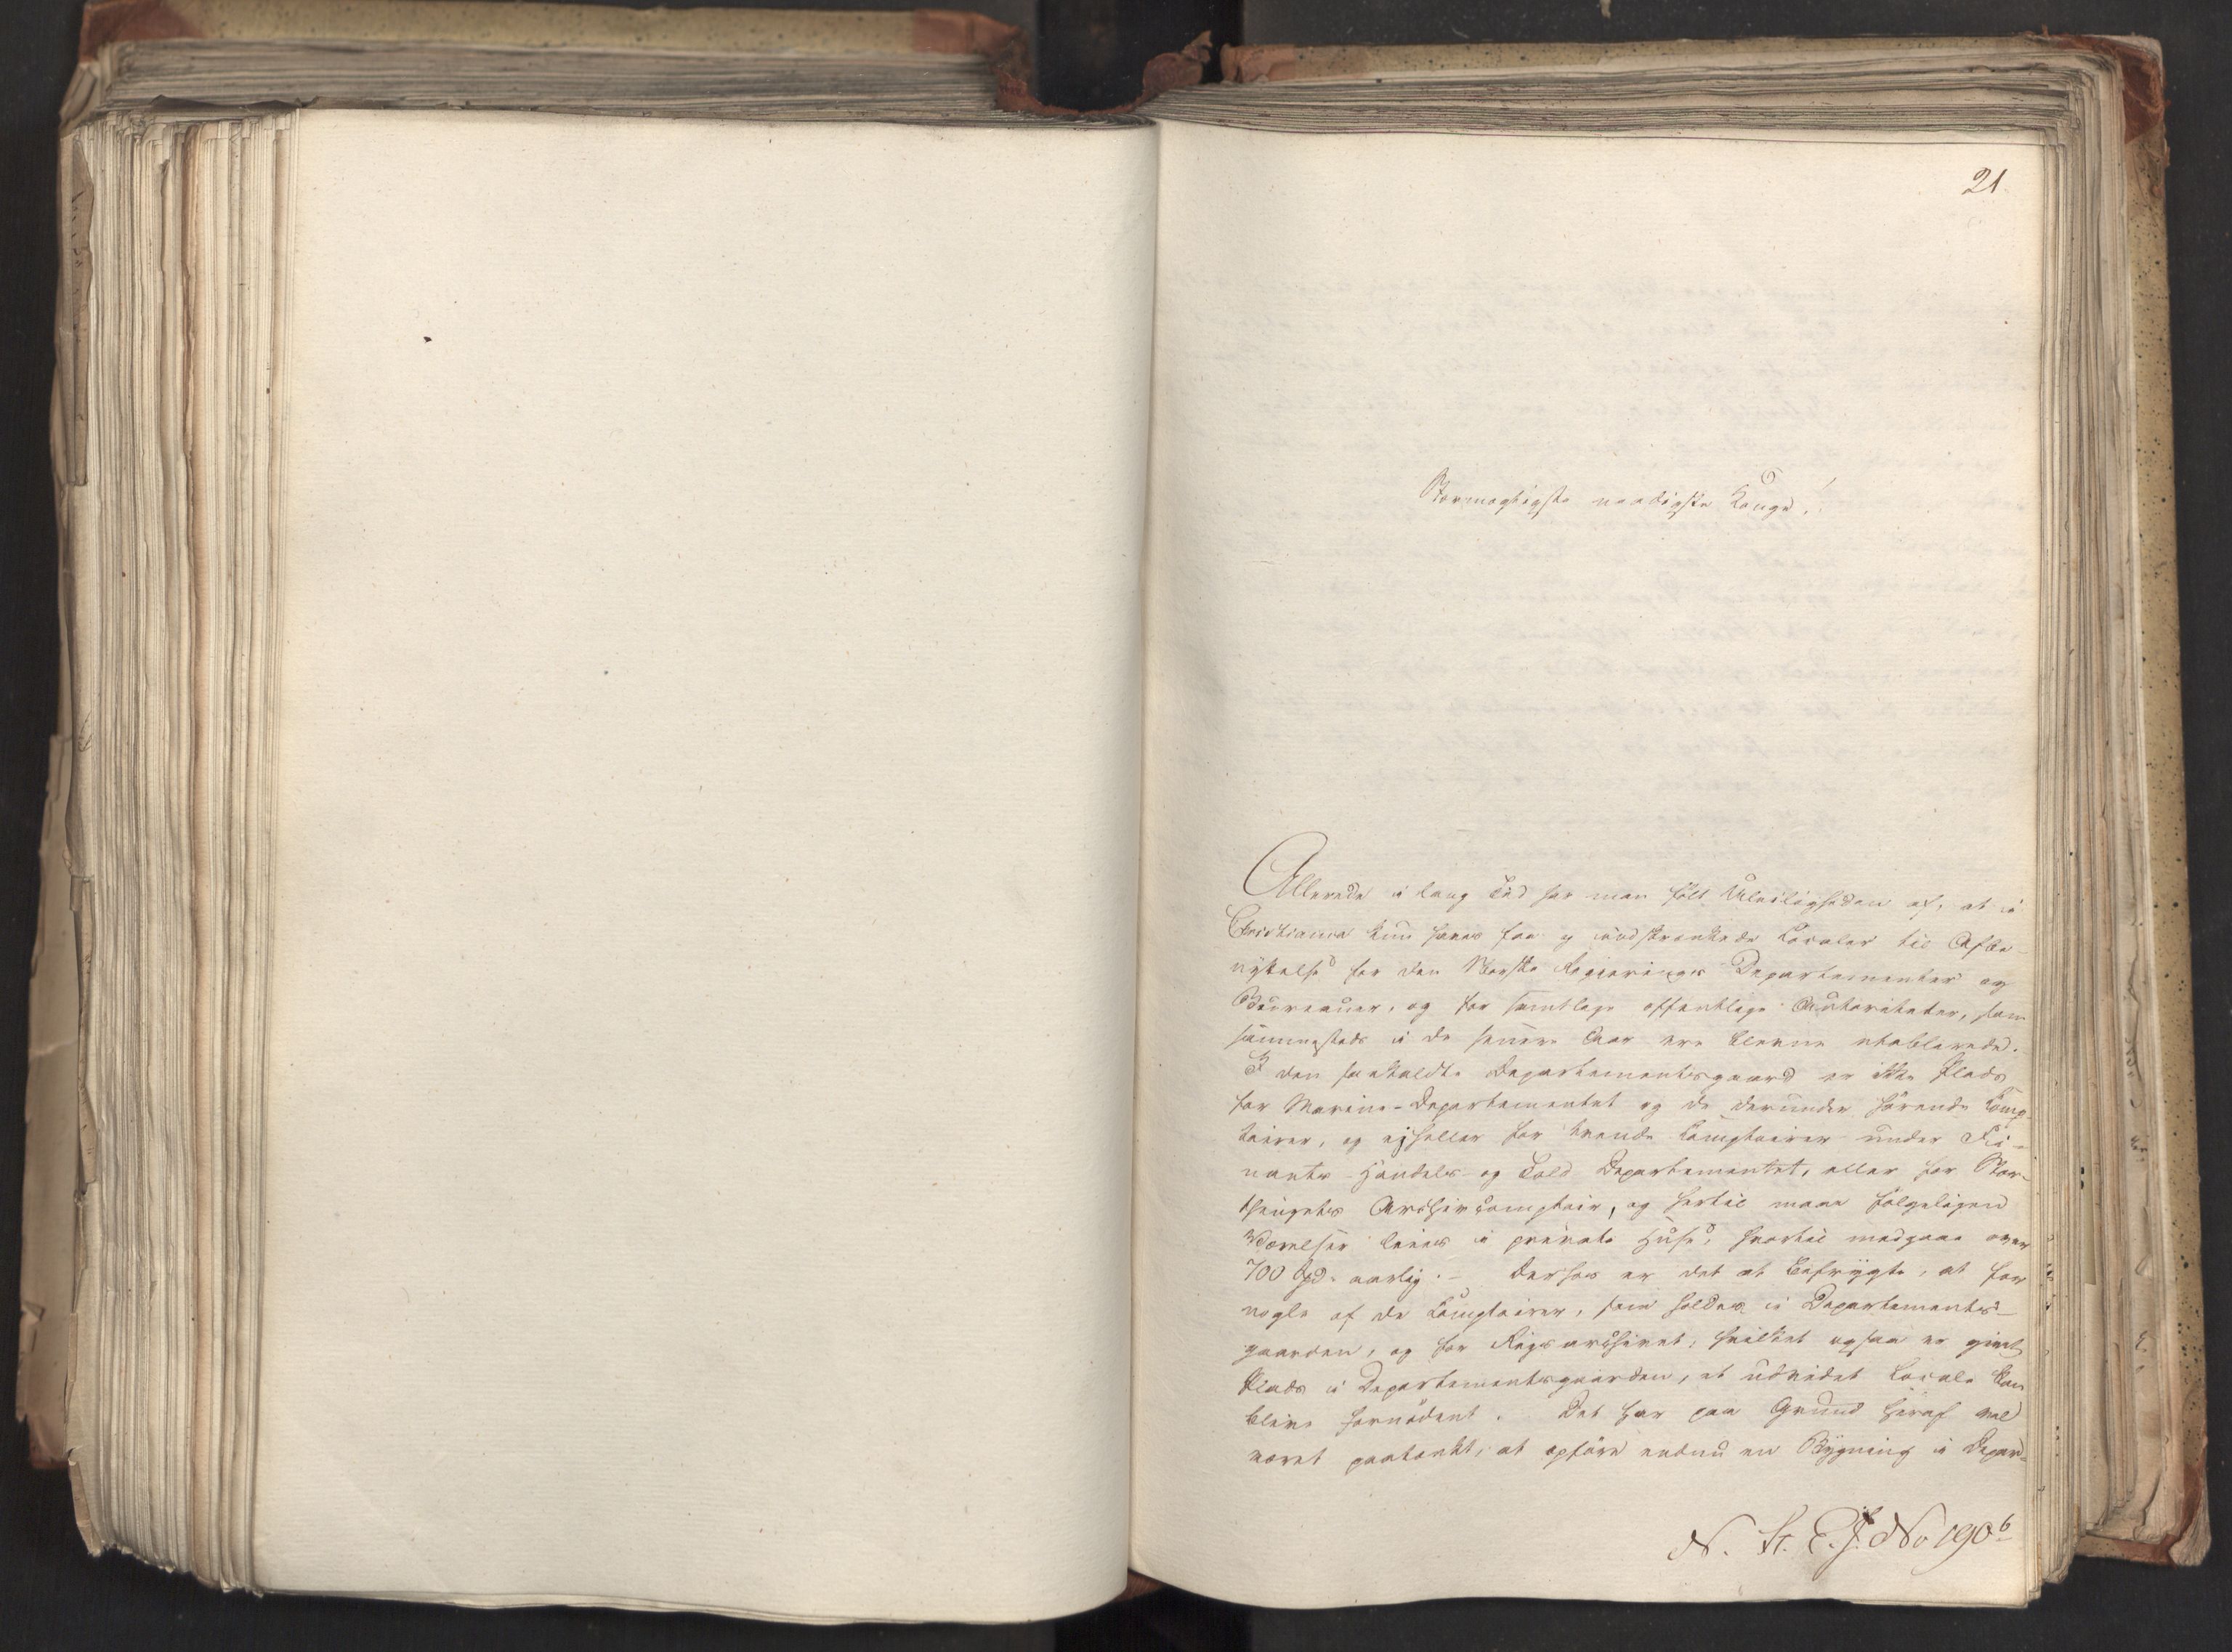 21.
Stormægtigste naadigste Konge!
Allerede i lang Tid har man følt Uleiligheden af, at i
Christiania kun haves faa og indskrænkede Localer til Afbe-
nyttelse for den Norske Regjerings Departementer og
Bureauer, og for samtlige offentlige Autoriteter, som
sammesteds i de senere Aar ere blevne etablerede.
I den saakaldte Departementsgaard er ikke Plads
for Marine-Departementet og de derunder hørende Comp-
toirer, og ejheller for tvende Comptoirer under Fi-
nants- Handels- og Told Departementet, eller for Stor-
thingets Archivcomptoir, og hertil maae følgeligen
Værelser leies i private Huse, hvortil medgaae over
700 Spd. aarlig. - Derhos er det at befrygte, at for
nogle af de Comptoirer, som holdes i Departements-
gaarden, og for Rigsarchivet, hvilket ogsaa er givet
Plads i Departementsgaarden, et udvidet Locale kan
blive fornødent. Det har paa Grund heraf vel
været paatænkt, at opføre endnu en Bygning i Depar-
N. St. E. J. No 190 b